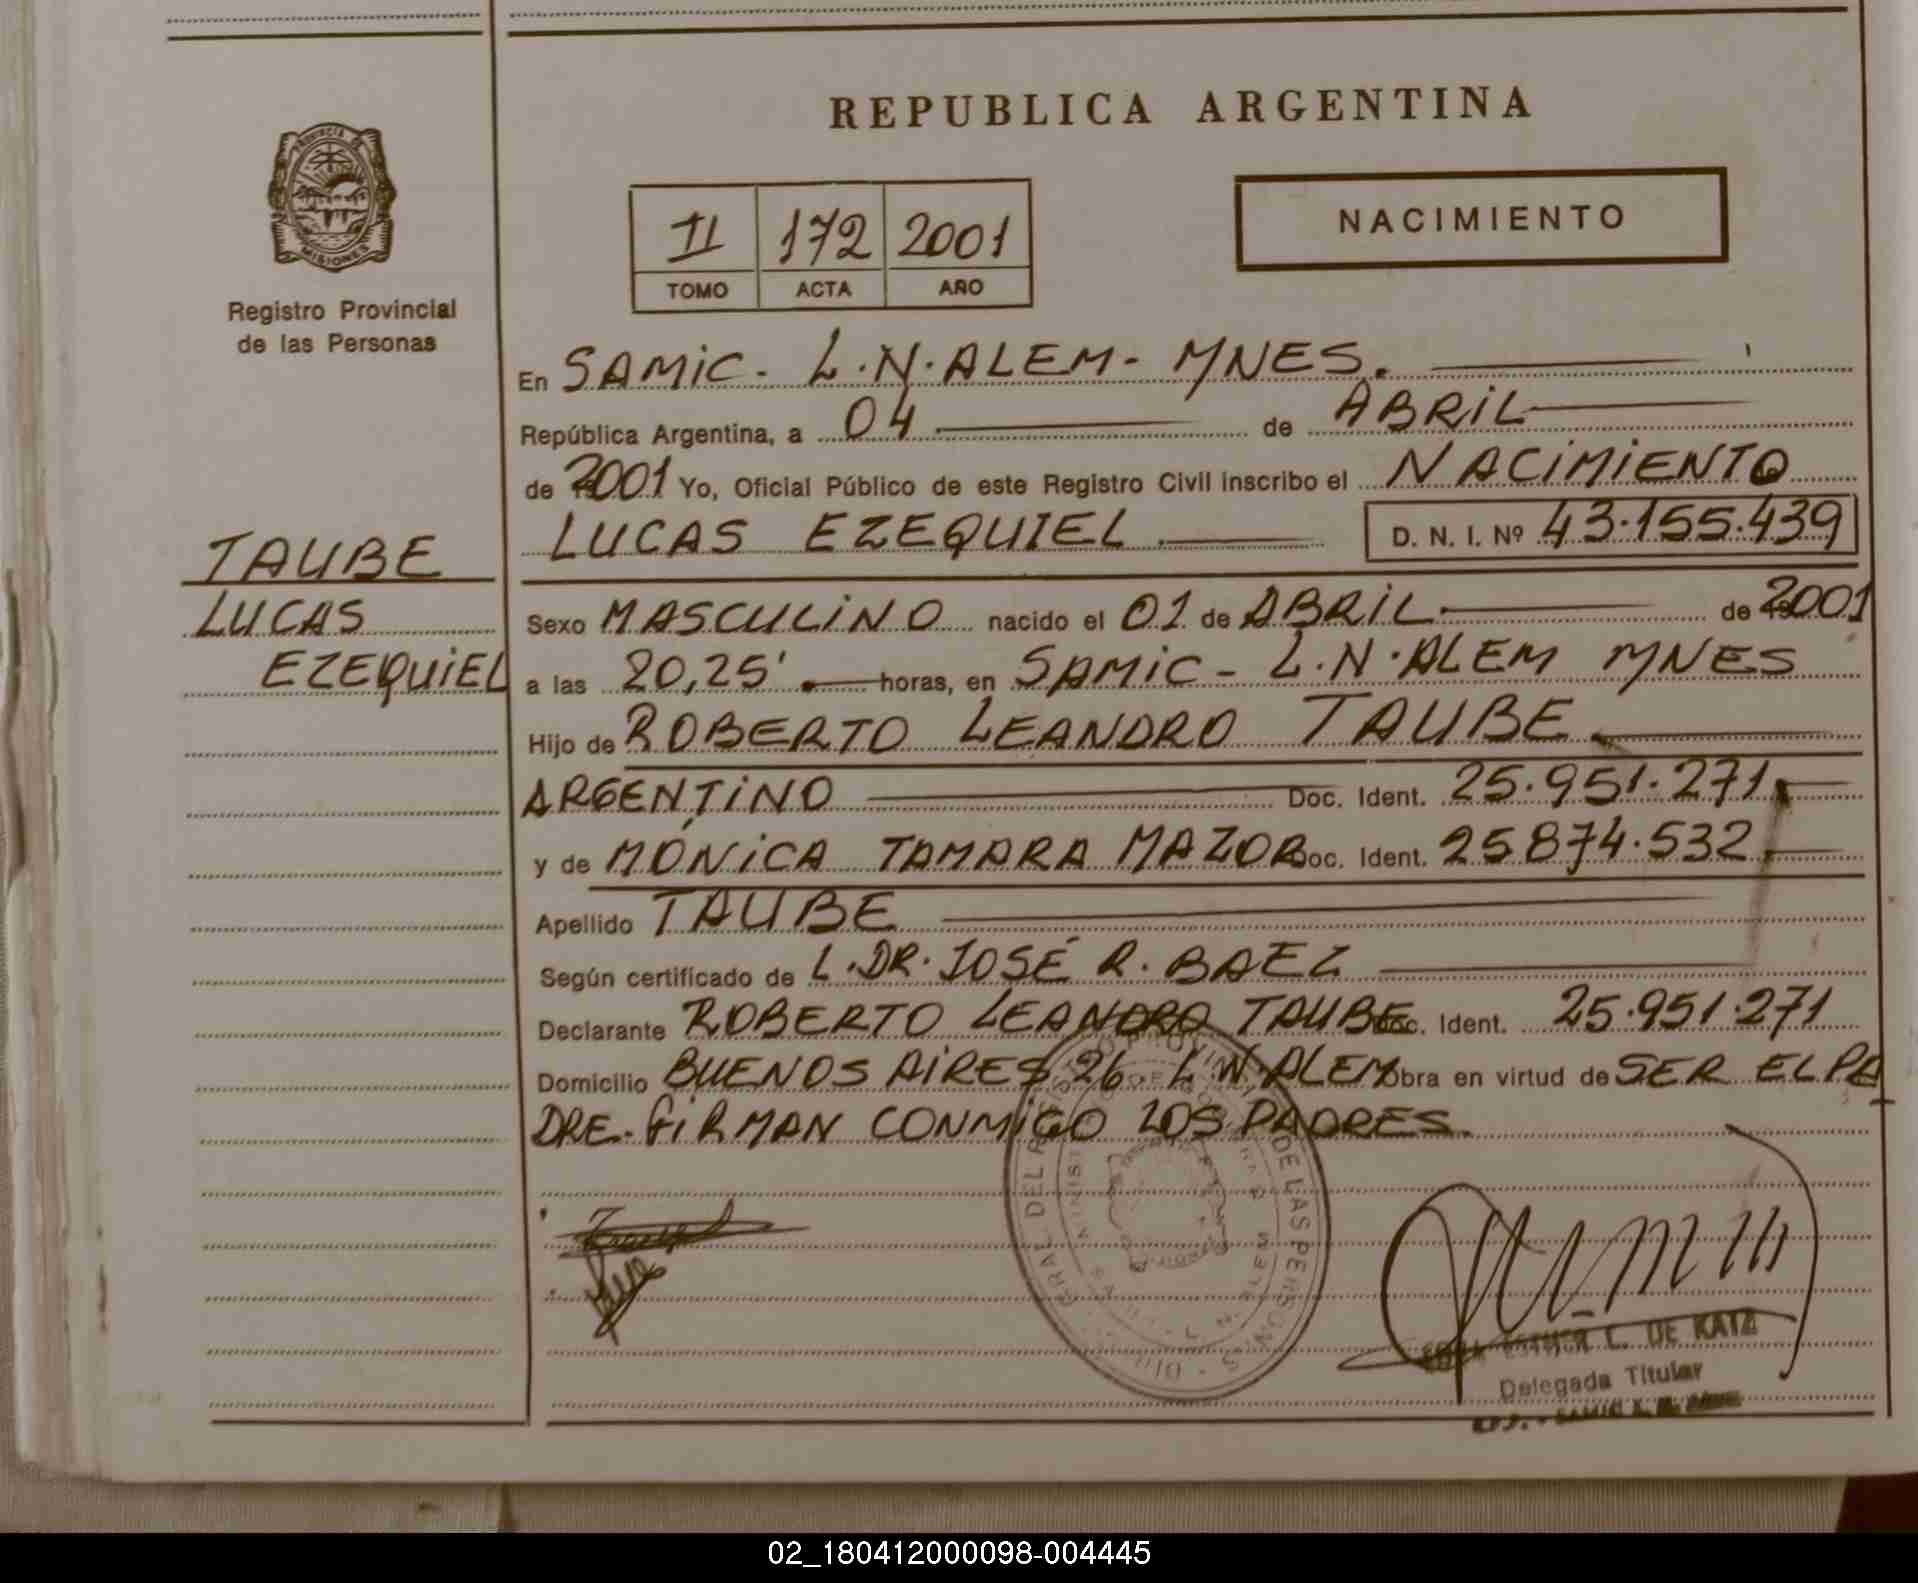 REPUBLICA ARGENTINA
PROVINCIA DE
MISIONES
Registro Provincial
de las Personas
II 172 2001
TOMO ACTA AÑO
NACIMIENTO
En SAMIC - L.N.ALEM - MNES.
República Argentina, a 04 de ABRIL
de 2001 Yo, Oficial Público de este Registro Civil inscribo el NACIMIENTO
LUCAS EZEQUIEL D. N. I. Nº 43.155.439
TAUBE
LUCAS
EZEQUIEL
Sexo MASCULINO nacido el 01 de ABRIL de 2001
a las 20,25' horas, en SAMIC - L.N.ALEM MNES
Hijo de ROBERTO LEANDRO TAUBE
ARGENTINO Doc. Ident. 25.951.271
y de MÓNICA TAMARA MAZOR Doc. Ident. 25874.532
Apellido TAUBE
Según certificado de L.DR.JOSÉ R. BAEZ
Declarante ROBERTO LEANDRO TAUBE Doc. Ident. 25.951.271
Domicilio BUENOS AIRES 26 L.N.ALEM Obra en virtud de SER EL PA
DRE. FIRMAN CONMIGO LOS PADRES.
DE LAS PERSONAS
L. N. ALEM
ESTHER C. DE KATZ
Delegada Titular
02_180412000098-004445